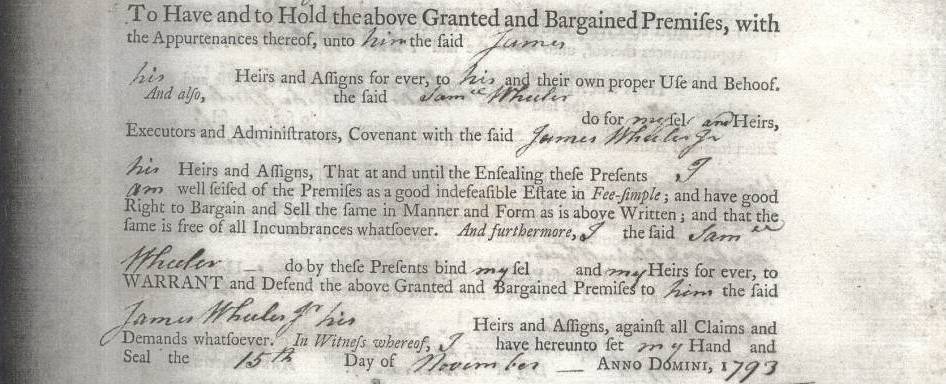 To Have and to Hold the above Granted and Bargained Premiſes, with
the Appurtenances thereof, unto him the ſaid James
his Heirs and Aſſigns for ever, to his and their own proper Uſe and Behoof.
And alſo, the ſaid Samˡˡ Wheeler
do for my ſel and Heirs,
Executors and Adminiſtrators, Covenant with the ſaid James Wheeler Jr
his Heirs and Aſſigns, That at and until the Enſealing theſe Preſents I
am well ſeiſed of the Premiſes as a good indefeaſible Eſtate in Fee-ſimple; and have good
Right to Bargain and Sell the ſame in Manner and Form as is above Written; and that the
ſame is free of all Incumbrances whatſoever. And furthermore, I the ſaid Samˡˡ
Wheeler do by theſe Preſents bind my ſel and my Heirs for ever, to
WARRANT and Defend the above Granted and Bargained Premiſes to him the ſaid
James Wheeler Jr his Heirs and Aſſigns, againſt all Claims and
Demands whatſoever. In Witneſs whereof, I have hereunto ſet my Hand and
Seal the 15th Day of November — ANNO DOMINI, 1793